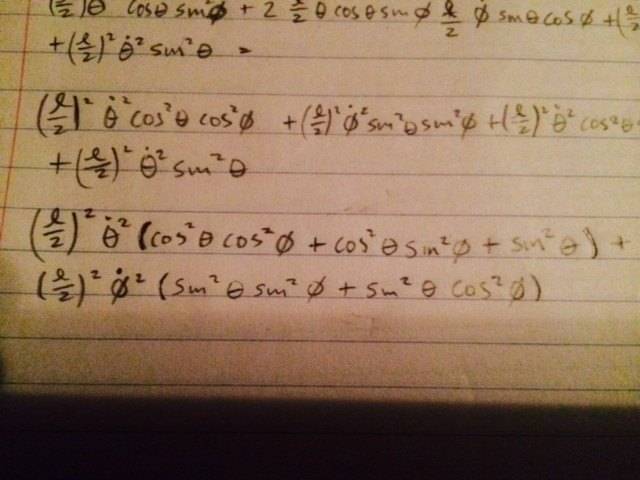 (ℓ/2)θ̇ cosθ sinϕ + 2 ℓ/2 θ̇ cosθ sinϕ ℓ/2 ϕ̇ sinθ cosϕ + (ℓ/2
+ (ℓ/2)² θ̇² sin²θ =
(ℓ/2)² θ̇² cos²θ cos²ϕ + (ℓ/2)² ϕ̇² sin²θ sin²ϕ + (ℓ/2)² θ̇² cos²θ
+ (ℓ/2)² θ̇² sin²θ
(ℓ/2)² θ̇² (cos²θ cos²ϕ + cos²θ sin²ϕ + sin²θ) +
(ℓ/2)² ϕ̇² (sin²θ sin²ϕ + sin²θ cos²ϕ)